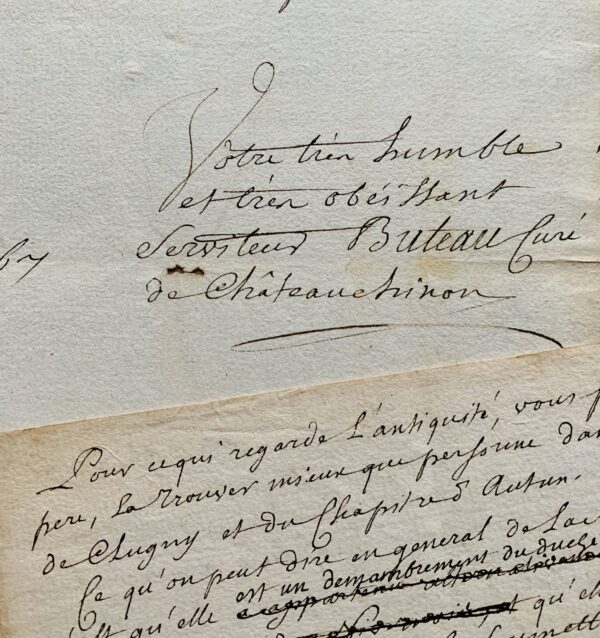 Votre tres humble
et tres obeissant
67
Serviteur Buteau Curé
de Châteauchinon
Pour cequi regarde L'antiquité, vous p
pere, La trouver mieux que personne dan
de Clugny et du Chapitre d'Autun.
Ce qu'on peut dire en general de La
est qu'elle est un demambrement du duché
et qu'elle